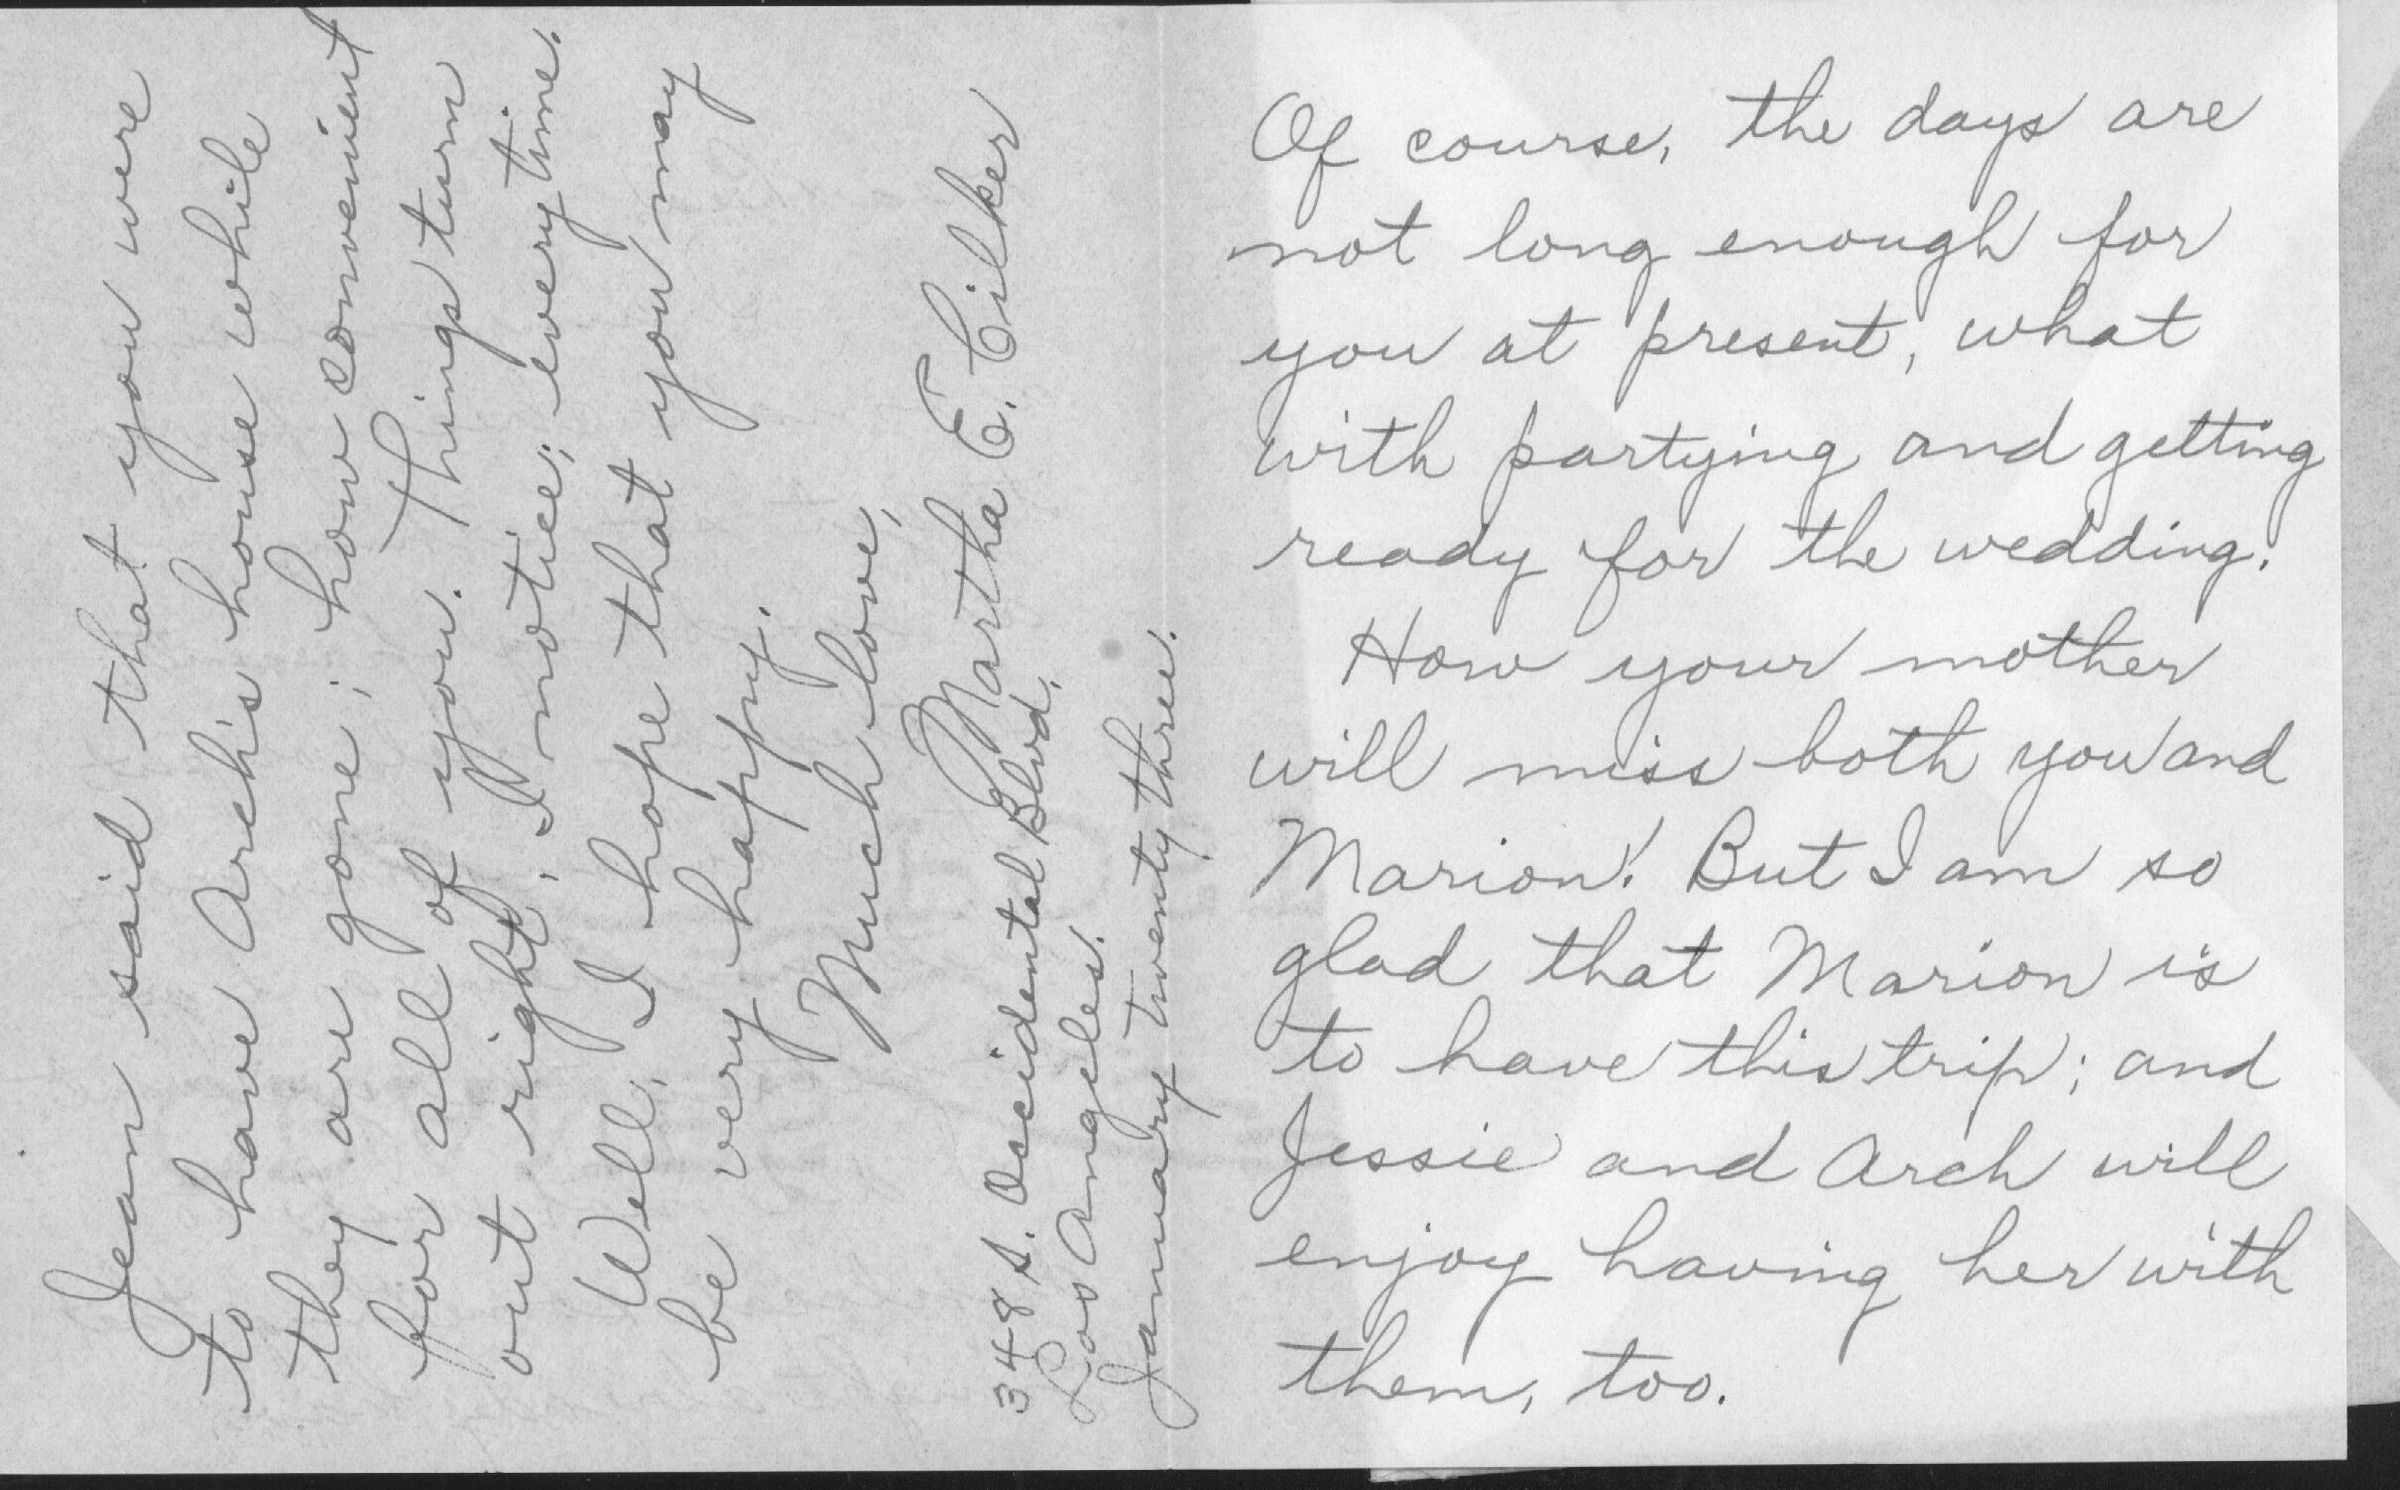 Of course, the days are
not long enough for
you at present, what
with partying and getting
ready for the wedding.
How your mother
will miss both you and
Marion! But I am so
glad that Marion is
to have this trip; and
Jessie and Arch will
enjoy having her with
them, too.
Jean said that you were
to have Arch's house while
they are gone; how convenient
for all of you. Things turn
out right, I notice, every time.
Well, I hope that you may
be very happy.
Much love,
Martha E. Cilker
348 S. Occidental Blvd.
Los Angeles.
January twenty three.